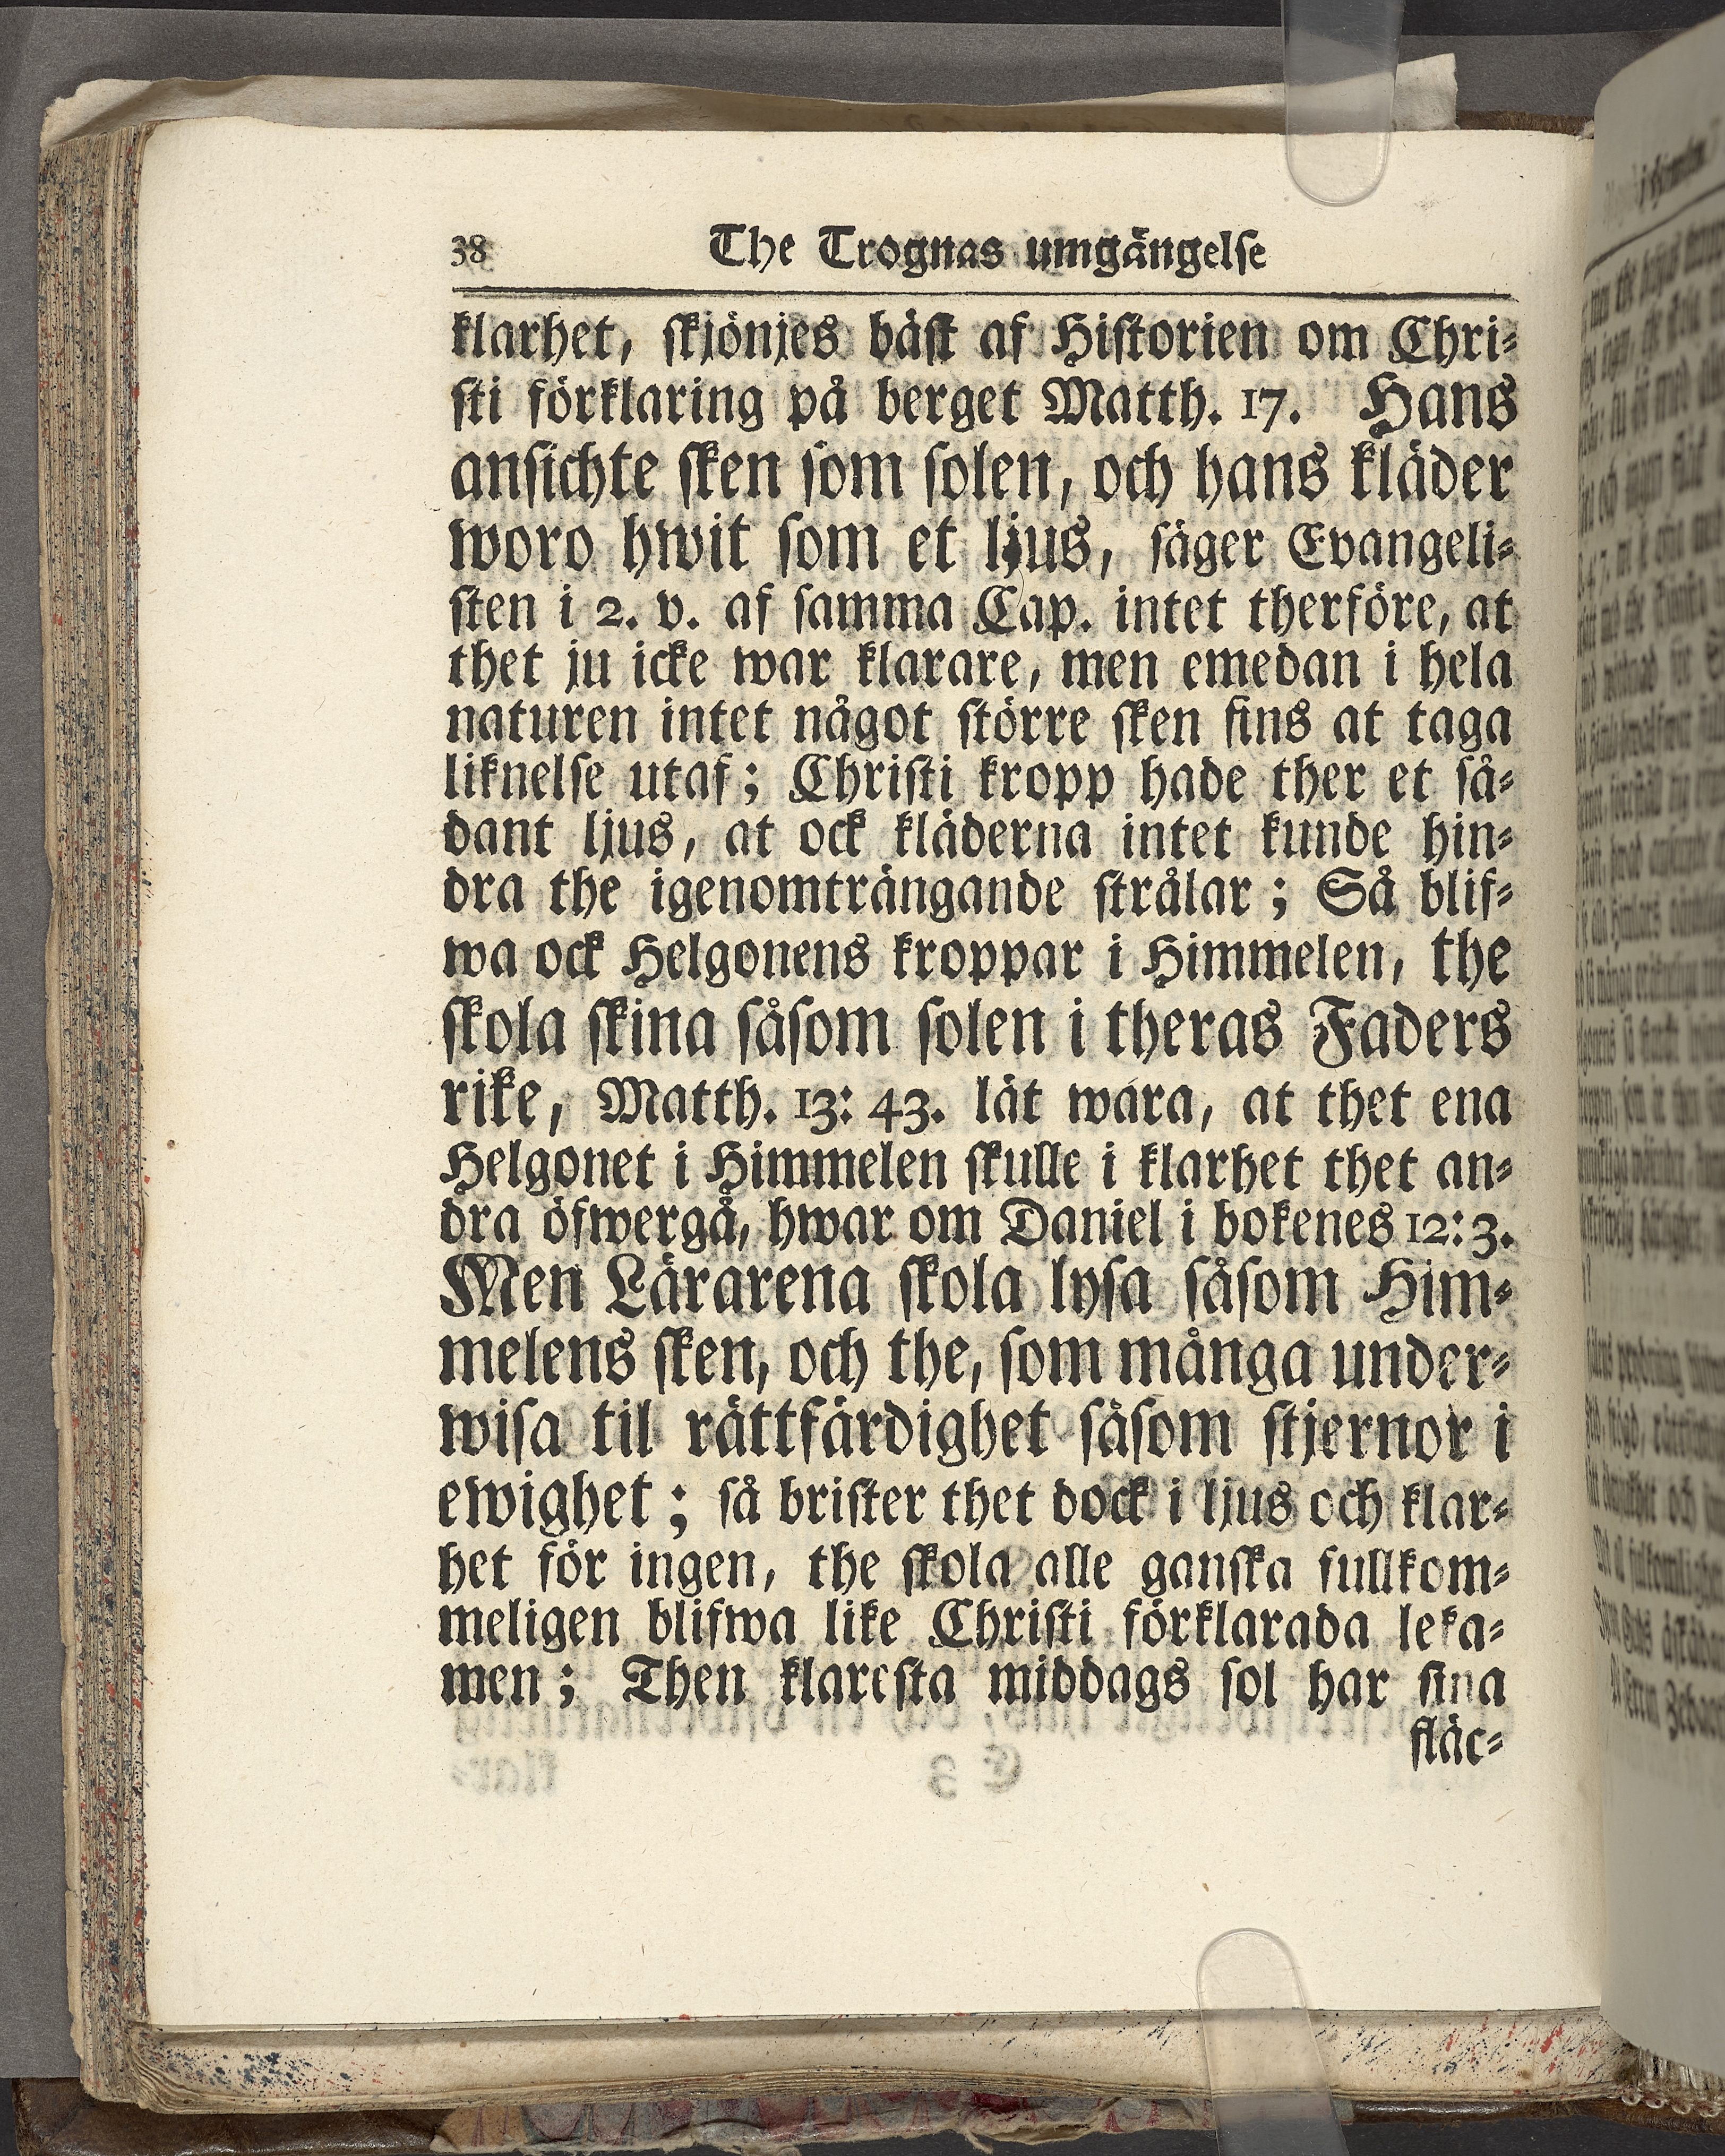 38 The Trognas umgängelse
klarhet, skjönjes bäst af Historien om Chri-
sti förklaring på berget Matth. 17. Hans
ansichte sken som solen, och hans kläder
woro hwit som et ljus, säger Evangeli-
sten i 2. v. af samma Cap. intet therföre, at
thet ju icke war klarare, men emedan i hela
naturen intet något större sken fins at taga
liknelse utaf; Christi kropp hade ther et så-
dant ljus, at ock kläderna intet kunde hin-
dra the igenomträngande strålar; Så blif-
wa ock Helgonens kroppar i Himmelen, the
skola skina såsom solen i theras Faders
rike, Matth. 13: 43. lät wara, at thet ena
Helgonet i Himmelen skulle i klarhet thet an-
dra öfwergå, hwar om Daniel i bokenes 12: 3.
Men Lärarena skola lysa såsom Him-
melens sken, och the, som många under-
wisa til rättfärdighet såsom stjernor i
ewighet; så brister thet dock i ljus och klar-
het för ingen, the skola alle ganska fullkom-
meligen blifwa like Christi förklarada leka-
men; Then klaresta middags sol har sina
fläc-